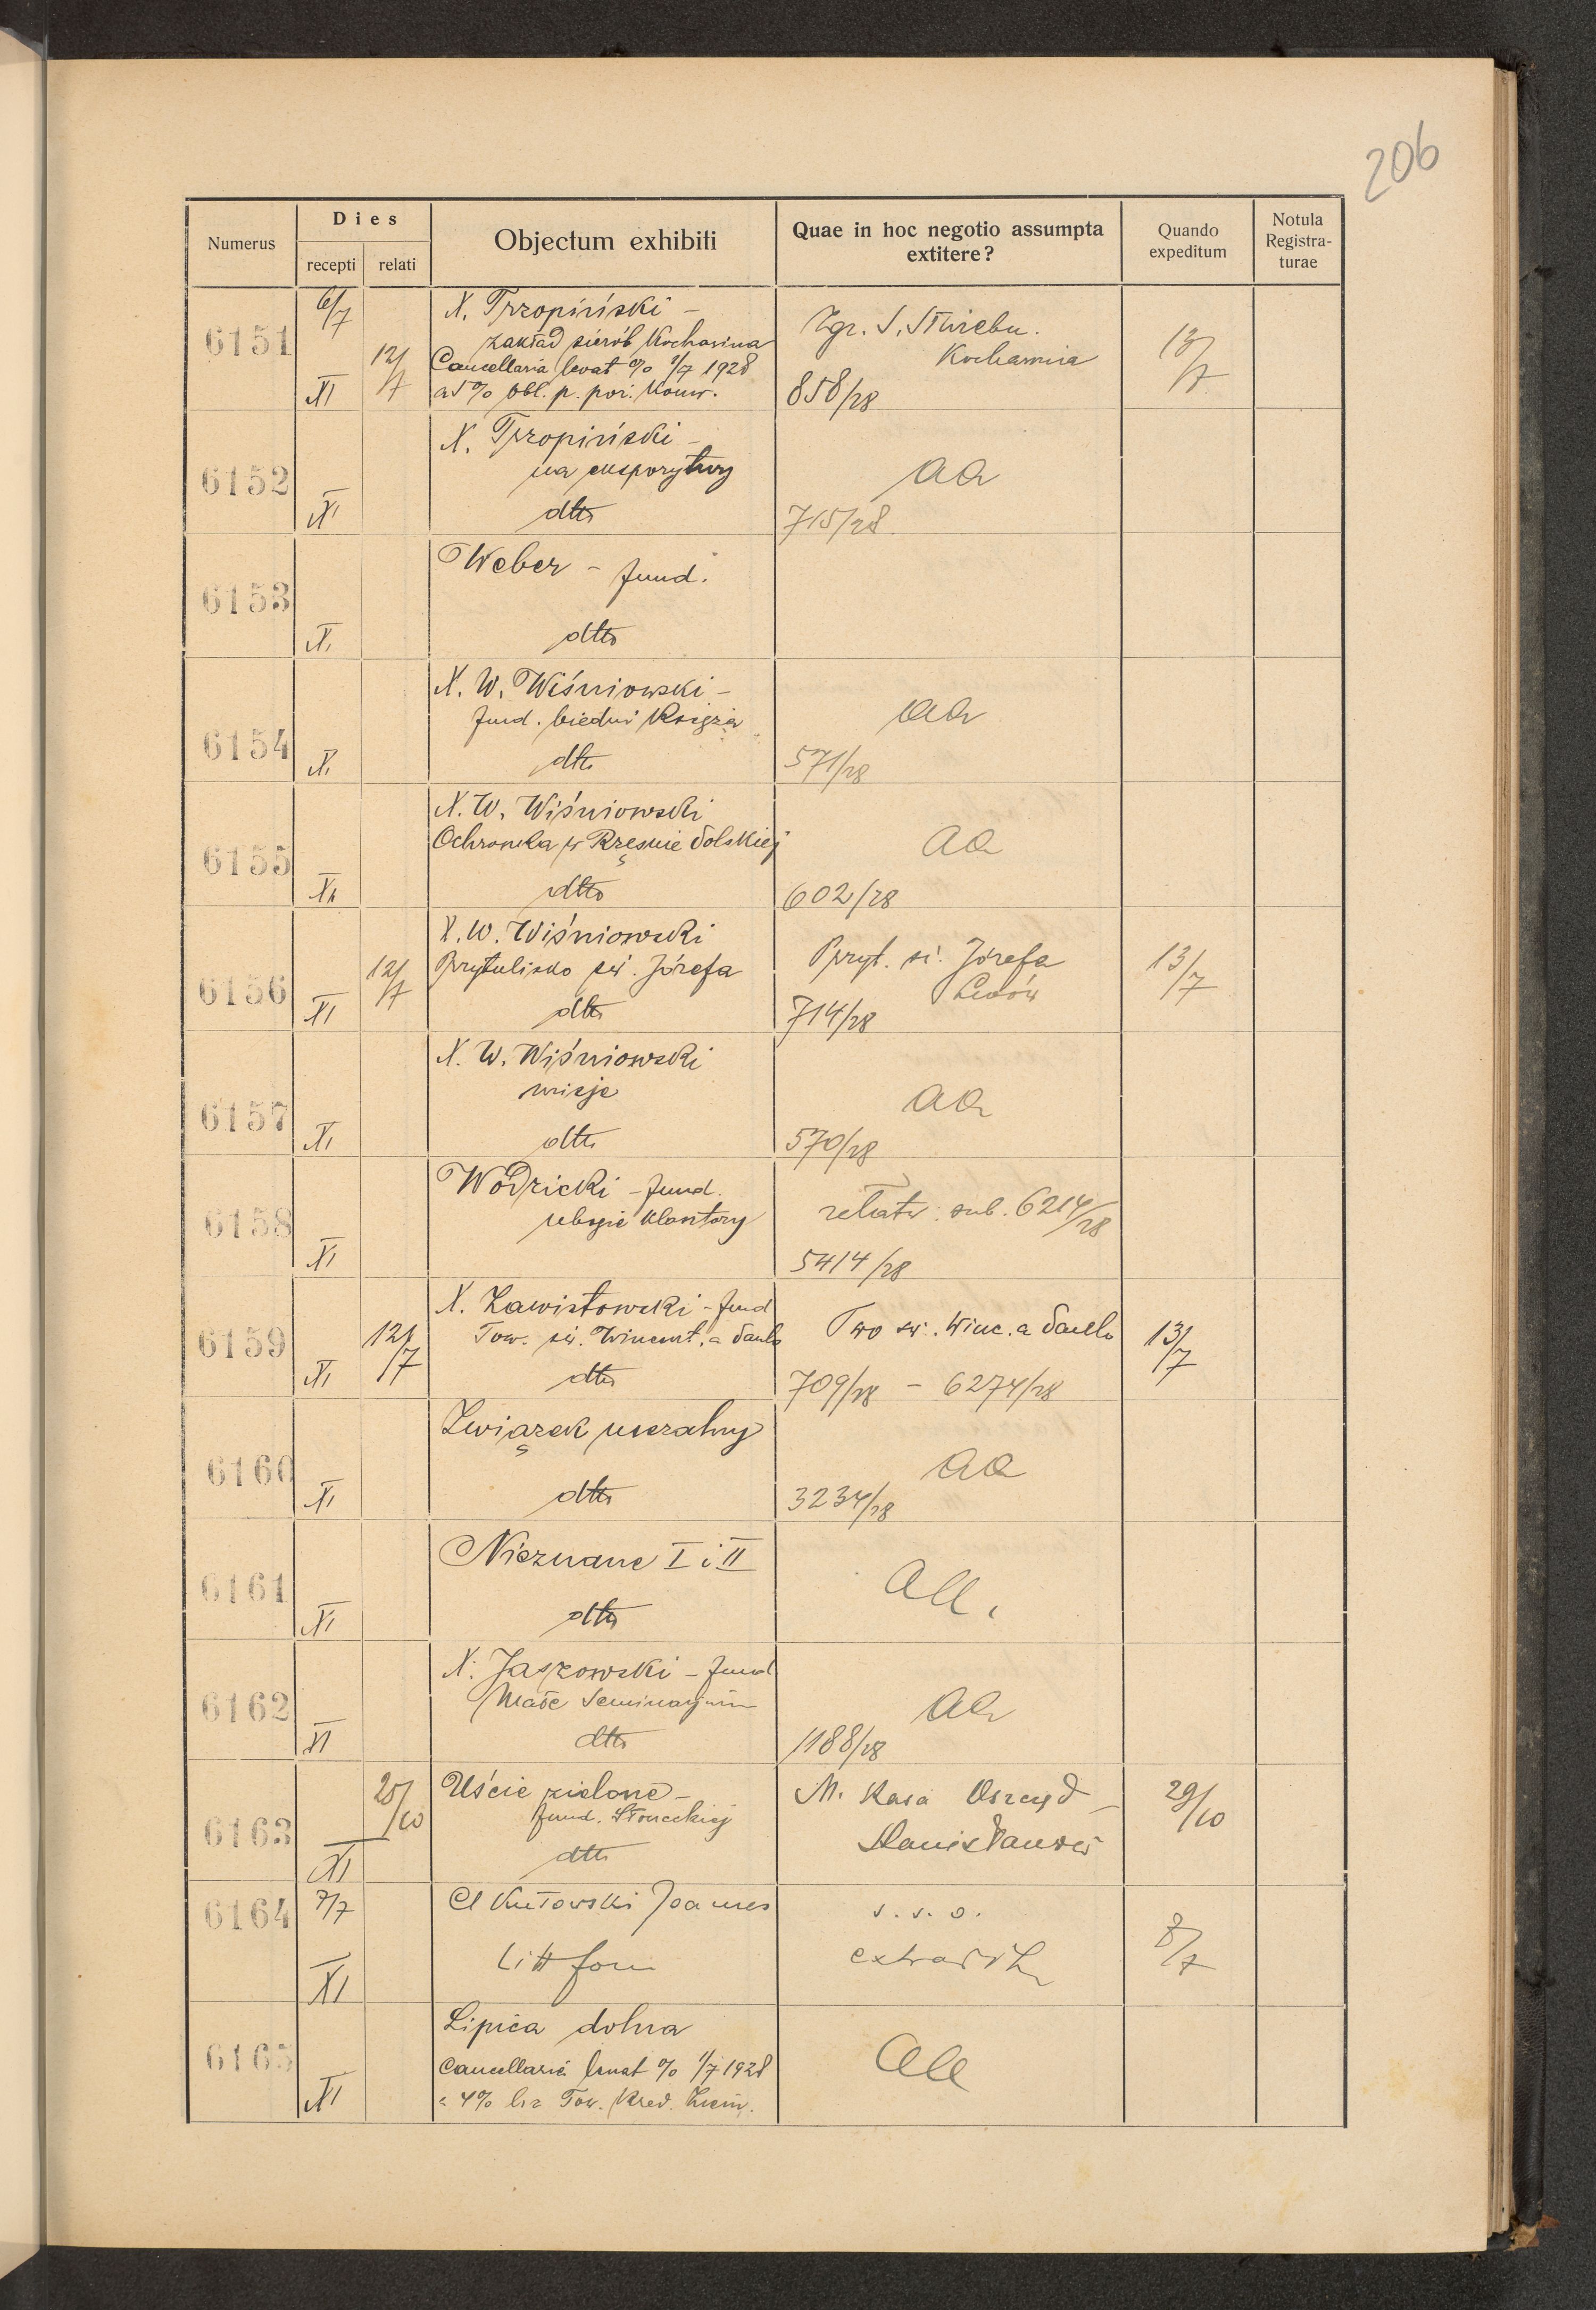 206
Numerus
Dies
recepti
relati
Objectum exhibiti
Quae in hoc negotio assumpta
extitere?
Quando
expeditum
Notula
Registra-
turae
6151
6/7
XI
12/7
X. Trzopiński -
zakład sierót Kochawina
Cancellaria levat % 1/7 1928
a 5% obl. p. poż. Konw.
Zgr. S. Służebn.
Kochawina
858/28
13/7
6152
XI
X. Trzopiński -
na
dtto
aa
715/28
6153
XI
Weber - fund.
dtto
6154
XI
X. W. Wiśniowski -
fund. biedni Księża
dtto
aa
571/28
6155
XI
X. W. Wiśniowski
Ochronka w Rzęśnie Polskiej
dtto
aa
602/28
6156
XI
12/7
X. W. Wiśniowski
Przytulisko św. Józefa
dtto
Przyt. św. Józefa
Lwów
714/28
13/7
6157
XI
X. W. Wiśniowski
misje
dtto
aa
570/28
6158
XI
Wodzicki - fund.
ubogie klasztory
relatu sub. 6214/28
5414/28
6159
XI
12/7
X. Zawistowski - fund
Tow. św. Wincent. a Paulo
dtto
Two św. Winc. a Paulo
709/28 - 6274/28
13/7
6160
XI
Związek mszalny
dtto
aa
3234/28
6161
XI
Nieznane I i II
dtto
aa.
6162
XI
X. Jaszowski - fund
Małe Seminarjum
dtto
aa
1188/28
6163
XI
25/10
Uście zielone -
fund. Słoneckiej
dtto
M. Kasa Oszczęd -
Stanisławów
29/10
6164
7/7
XI
Cl Kutowski Joannes
Litt form
s. s. o.
8/7
6165
XI
Lipica dolna
Cancellaria levat % 1/7 1928
a 4% lis Tow. Kred. Ziem.
aa